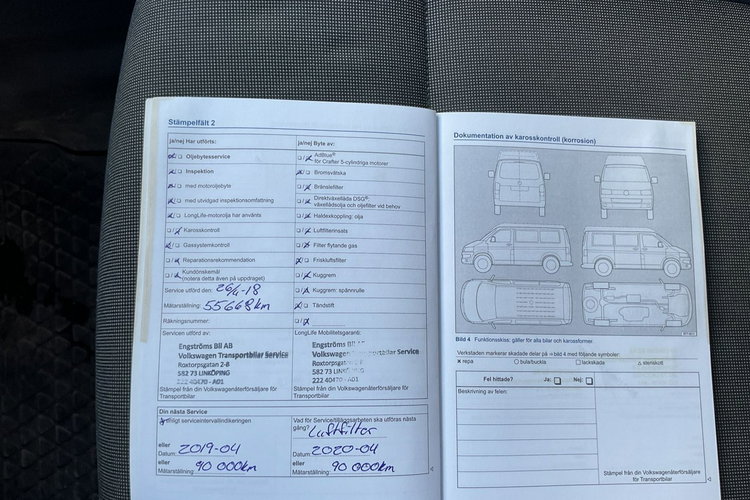 Stämpelfält 2
ja/nej Har utförts:
Oljebytesservice
Inspektion
med motoroljebyte
med utvidgad inspektionsomfattning
LongLife-motorolja har använts
Karosskontroll
Gassystemkontroll
Reparationsrekommendation
Kundönskemål
(notera detta även på uppdraget)
Service utförd den: 26/4-18
Mätarställning: 55668km
Räkningsnummer:
Servicen utförd av:
Engströms Bil AB
Volkswagen Transportbilar Service
Roxtorpsgatan 2-8
582 73 LINKÖPING
222 40470 - A01
Stämpel från din Volkswagenåterförsäljare för
Transportbilar
ja/nej Byte av:
AdBlue®
för Crafter 5-cylindriga motorer
Bromsvätska
Bränslefilter
Direktväxellåda DSG®:
växellådsolja och oljefilter vid behov
Haldexkoppling: olja
Luftfilterinsats
Filter flytande gas
Friskluftsfilter
Kuggrem
Kuggrem: spännrulle
Tändstift
LongLife Mobilitetsgaranti:
Engströms Bil AB
Volkswagen Transportbilar Service
Roxtorpsgatan
582 73 LINKÖPING
222 40470 - A01
Stämpel från din Volkswagenåterförsäljare för
Transportbilar
Din nästa Service
enligt serviceintervallindikeringen
eller
Datum: 2019-04
eller
Mätarställning: 90 000km
Vad för Service/tilläggsarbeten ska utföras nästa
gång? Luftfilter
Datum: 2020-04
eller
Mätarställning: 90 000km
Dokumentation av karosskontroll (korrosion)
Bild 4 Funktionsskiss: gäller för alla bilar och karossformer.
Verkstaden markerar skadade delar på ⇒ bild 4 med följande symboler:
x repa ○ bula/buckla □ lackskada △ stenskott
Fel hittade? Ja: Nej:
Beskrivning av felen:
Stämpel från din Volkswagenåterförsäljare
för Transportbilar